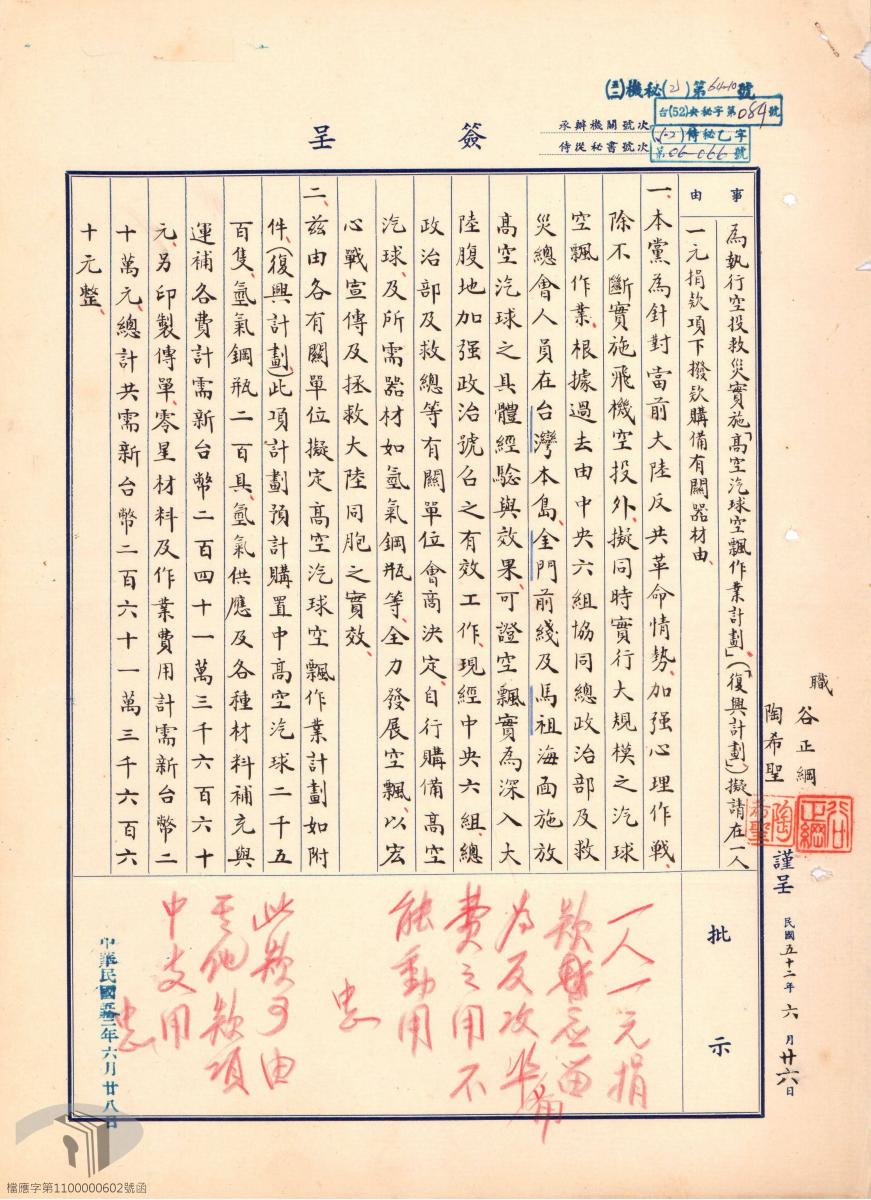 簽呈
(五二)機秘(乙)第64-10號
台(52)央秘字第084號
(52)侍秘乙字
第06-066號
承辦機關號次
侍從秘書號次
職
谷正綱
陶希聖
謹呈
民國五十二年六月廿六日
谷正綱
陶希聖
事由
為執行空投救災實施「高空汽球空飄作業計劃」(「復興計劃」)擬請在一人
一元捐款項下撥款購備有關器材由、
一、本黨為針對當前大陸反共革命情勢、加强心理作戰、
除不斷實施飛機空投外、擬同時實行大規模之汽球
空飄作業、根據過去由中央六組協同總政治部及救
災總會人員在台灣本島、金門前綫及馬祖海面施放
高空汽球之具體經驗與效果、可證空飄實為深入大
陸腹地加强政治號召之有效工作、現經中央六組、總
政治部及救總等有關單位會商決定、自行購備高空
汽球、及所需器材如氫氣鋼瓶等、全力發展空飄、以宏
心戰宣傳及拯救大陸同胞之實效、
二、茲由各有關單位擬定高空汽球空飄作業計劃如附
件、(復興計劃)此項計劃預計購置中高空汽球二千五
百隻、氫氣鋼瓶二百具、氫氣供應及各種材料補充與
運補各費計需新台幣二百四十一萬三千六百六十
元、另印製傳單、零星材料及作業費用計需新台幣二
十萬元、總計共需新台幣二百六十一萬三千六百六
十元整、
批示
一人一元捐
款應留
為反攻準備
費之用不
能動用
忠
此款可由
其他款項
中支用
忠
中華民國五拾二年六月廿八日
檔應字第1100000602號函